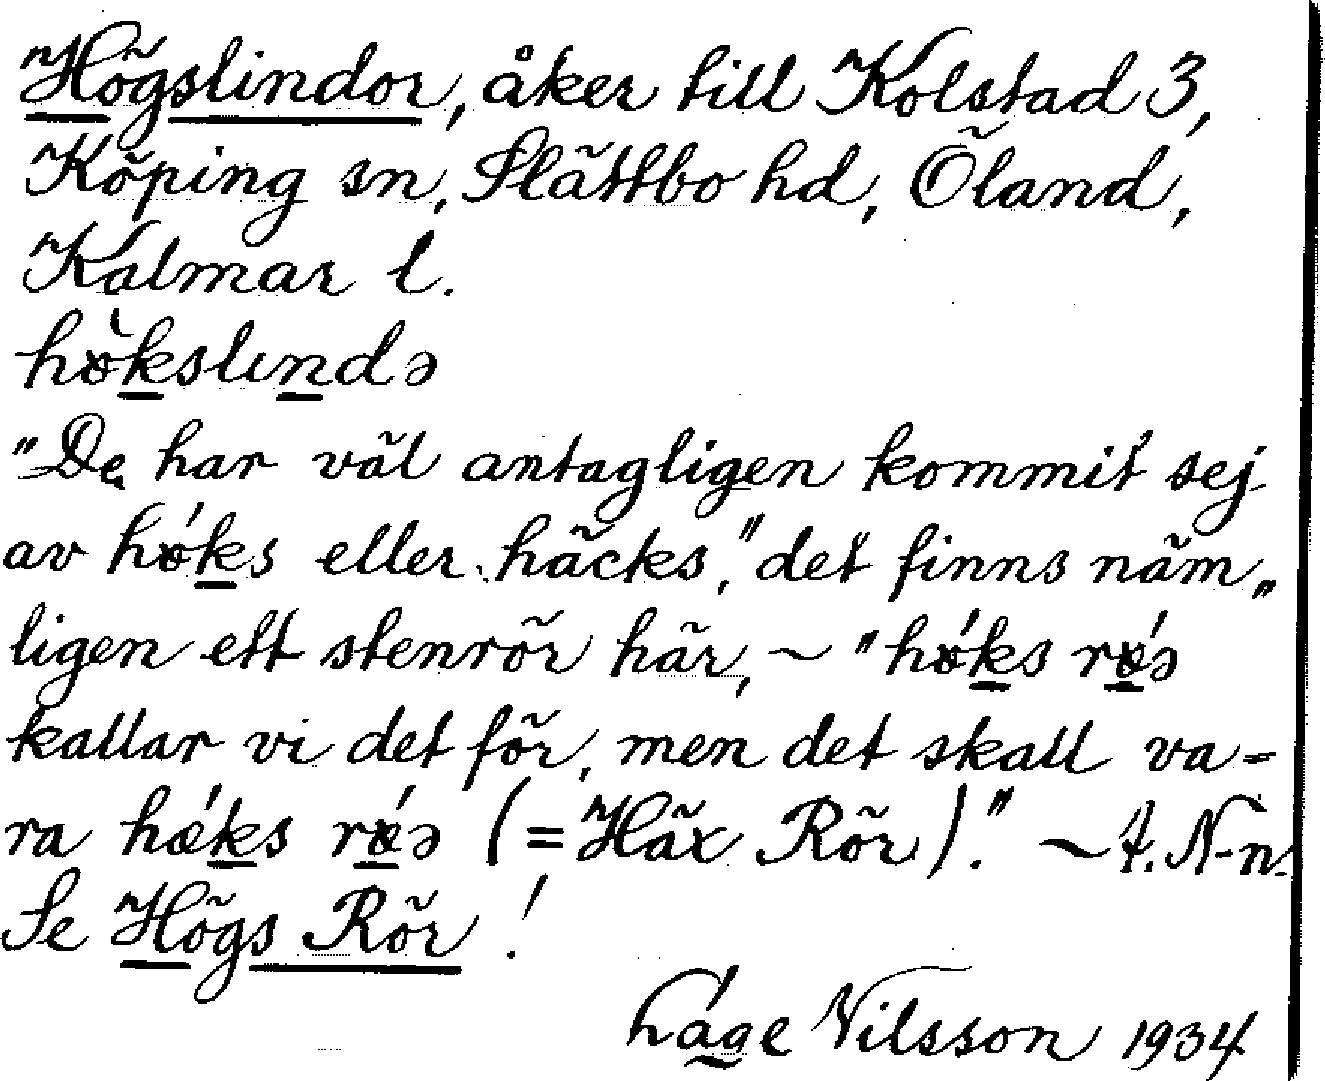 Högslindor, åker till Kolstad 3,
Köping sn, Slättbo hd, Öland,
Kalmar l.
hökslındə
"De har väl antagligen kommit sej
av høks eller häcks," det finns näm„
ligen ett stenrör här, ~ "høks røə
kallar vi det för, men det skall va=
ra hæks røə (=Häx Rör)." ~ A. N-n.
Se Högs Rör!
Håge Nilsson 1934